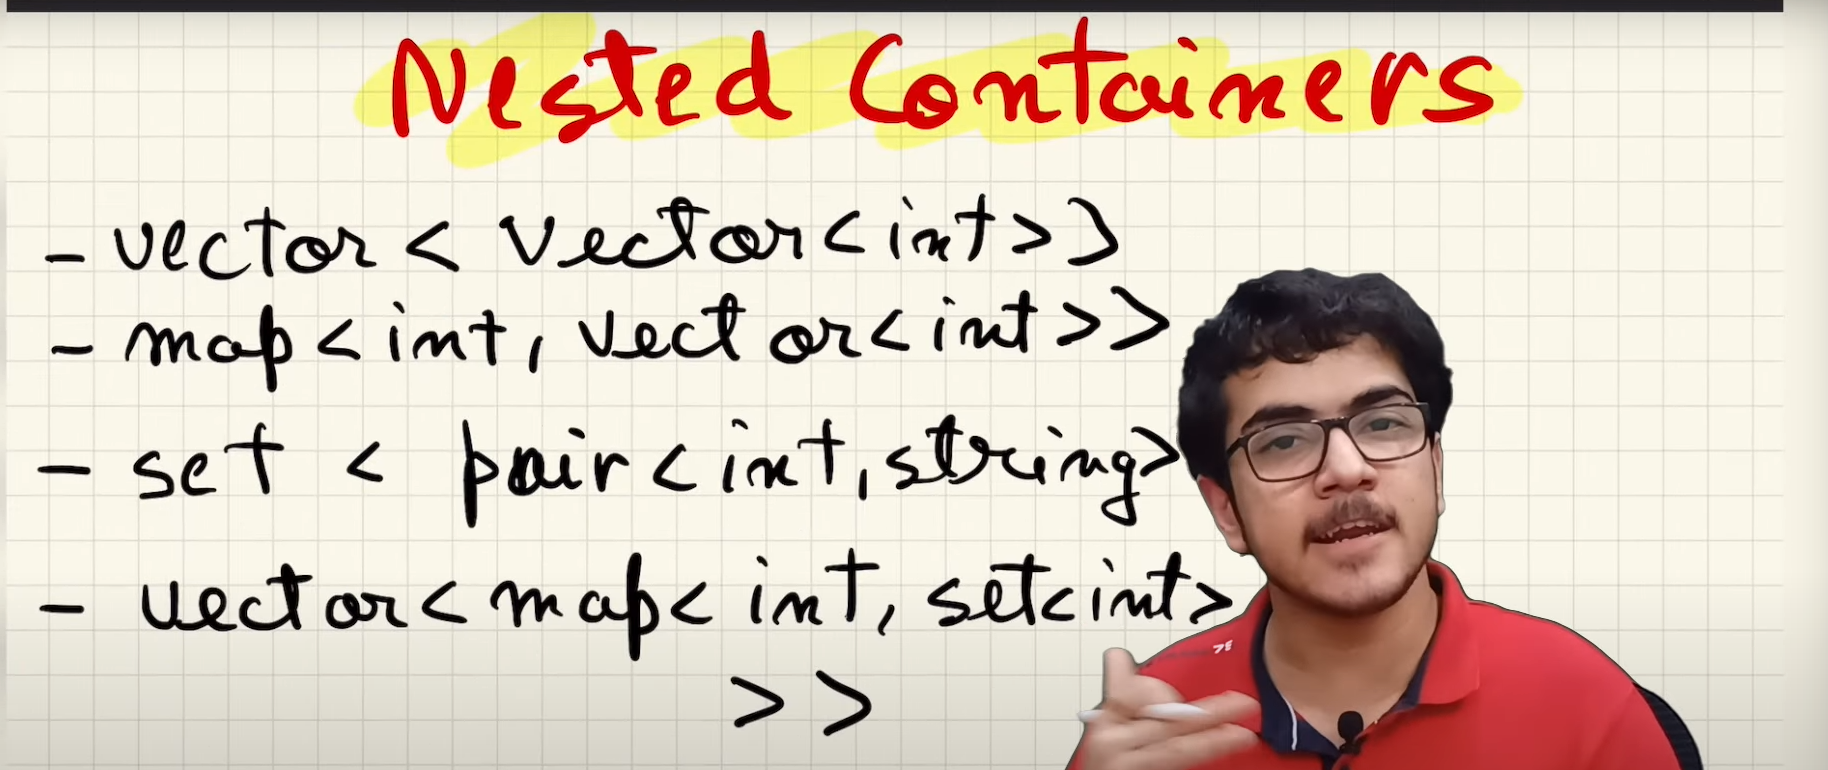 Nested Containers
- vector < vector<int>>
- map<int, vector<int>>
- set < pair<int, string>
- vector<map< int, set<int>
>>